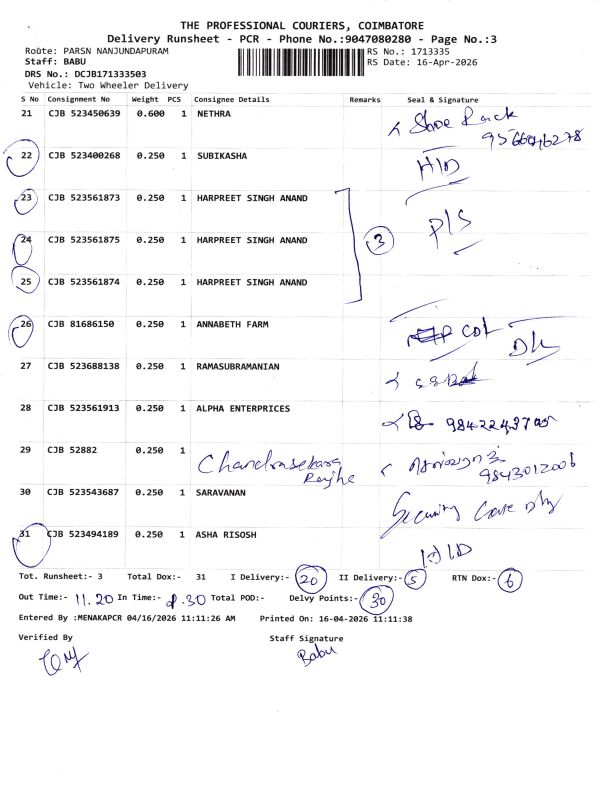 THE PROFESSIONAL COURIERS, COIMBATORE
Delivery Runsheet - PCR - Phone No.:9047080280 - Page No.:3
Route: PARSN NANJUNDAPURAM
RS No.: 1713335
Staff: BABU
RS Date: 16-Apr-2026
DRS No.: DCJB171333503
Vehicle: Two Wheeler Delivery
S No Consignment No Weight PCS Consignee Details Remarks Seal & Signature
21 CJB 523450639 0.600 1 NETHRA
22 CJB 523400268 0.250 1 SUBIKASHA H/D
23 CJB 523561873 0.250 1 HARPREET SINGH ANAND
24 CJB 523561875 0.250 1 HARPREET SINGH ANAND 3 P/S
25 CJB 523561874 0.250 1 HARPREET SINGH ANAND
26 CJB 81686150 0.250 1 ANNABETH FARM
27 CJB 523688138 0.250 1 RAMASUBRAMANIAN
28 CJB 523561913 0.250 1 ALPHA ENTERPRICES
29 CJB 52882 0.250 1 Chandrasekara
9843012006
30 CJB 523543687 0.250 1 SARAVANAN Security
31 CJB 523494189 0.250 1 ASHA RISOSH H/D
Tot. Runsheet:- 3 Total Dox:- 31 I Delivery:- 20 II Delivery:- 5 RTN Dox:- 6
Out Time:- 11.20 In Time:- 8.30 Total POD:- Delvy Points:- 30
Entered By :MENAKAPCR 04/16/2026 11:11:26 AM Printed On: 16-04-2026 11:11:38
Verified By Staff Signature
Babu